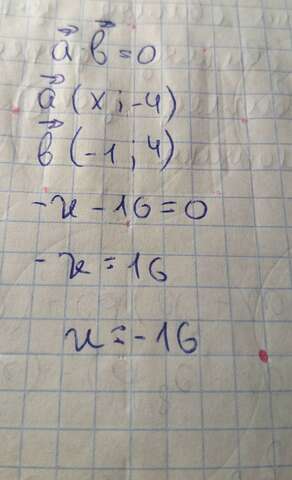 a⃗ · b⃗ = 0
a⃗ (x ; -4)
b⃗ (-1 ; 4)
-x - 16 = 0
-x = 16
x = -16